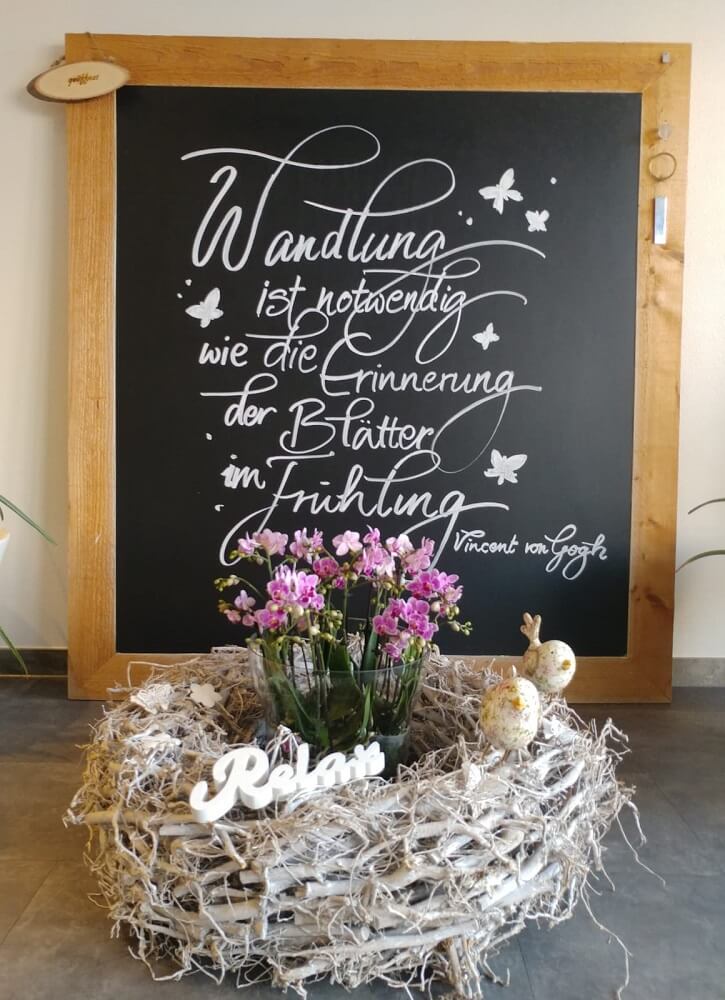 geöffnet
Wandlung
ist notwendig
wie die Erinnerung
der Blätter
im Frühling
Vincent van Gogh
Relax